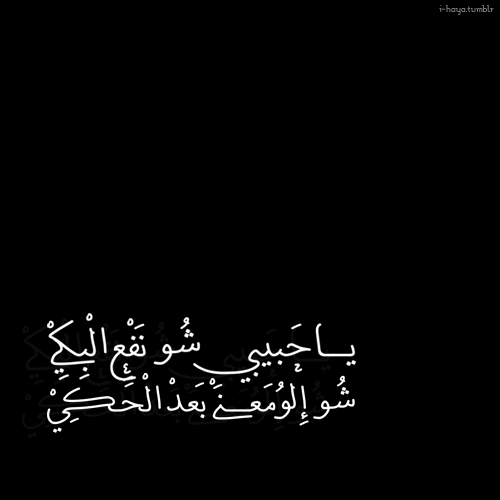 i-haya.tumblr
يـا حَبيبي شُو نَفْع الْبِكِيْ
شُو إِلوُ مَعنىَ بَعَدْ الْحَكِيْ